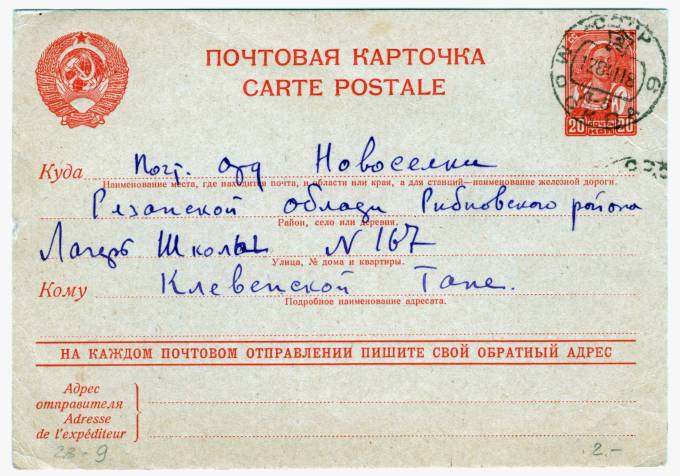 ПОЧТОВАЯ КАРТОЧКА
CARTE POSTALE
20 ПОЧТА 20
КОП
Куда Почт. отд Новоселки
Наименование места, где находится почта, и области или края, а для станций—наименование железной дороги.
Рязанской облади Рибновского района
Район, село или деревня.
Лагерь Школы N 167
Улица, № дома и квартиры.
Кому Клевенской Тане.
Подробное наименование адресата.
НА КАЖДОМ ПОЧТОВОМ ОТПРАВЛЕНИИ ПИШИТЕ СВОЙ ОБРАТНЫЙ АДРЕС
Адрес
отправителя
Adresse
de l'expéditeur
23-9
2.-